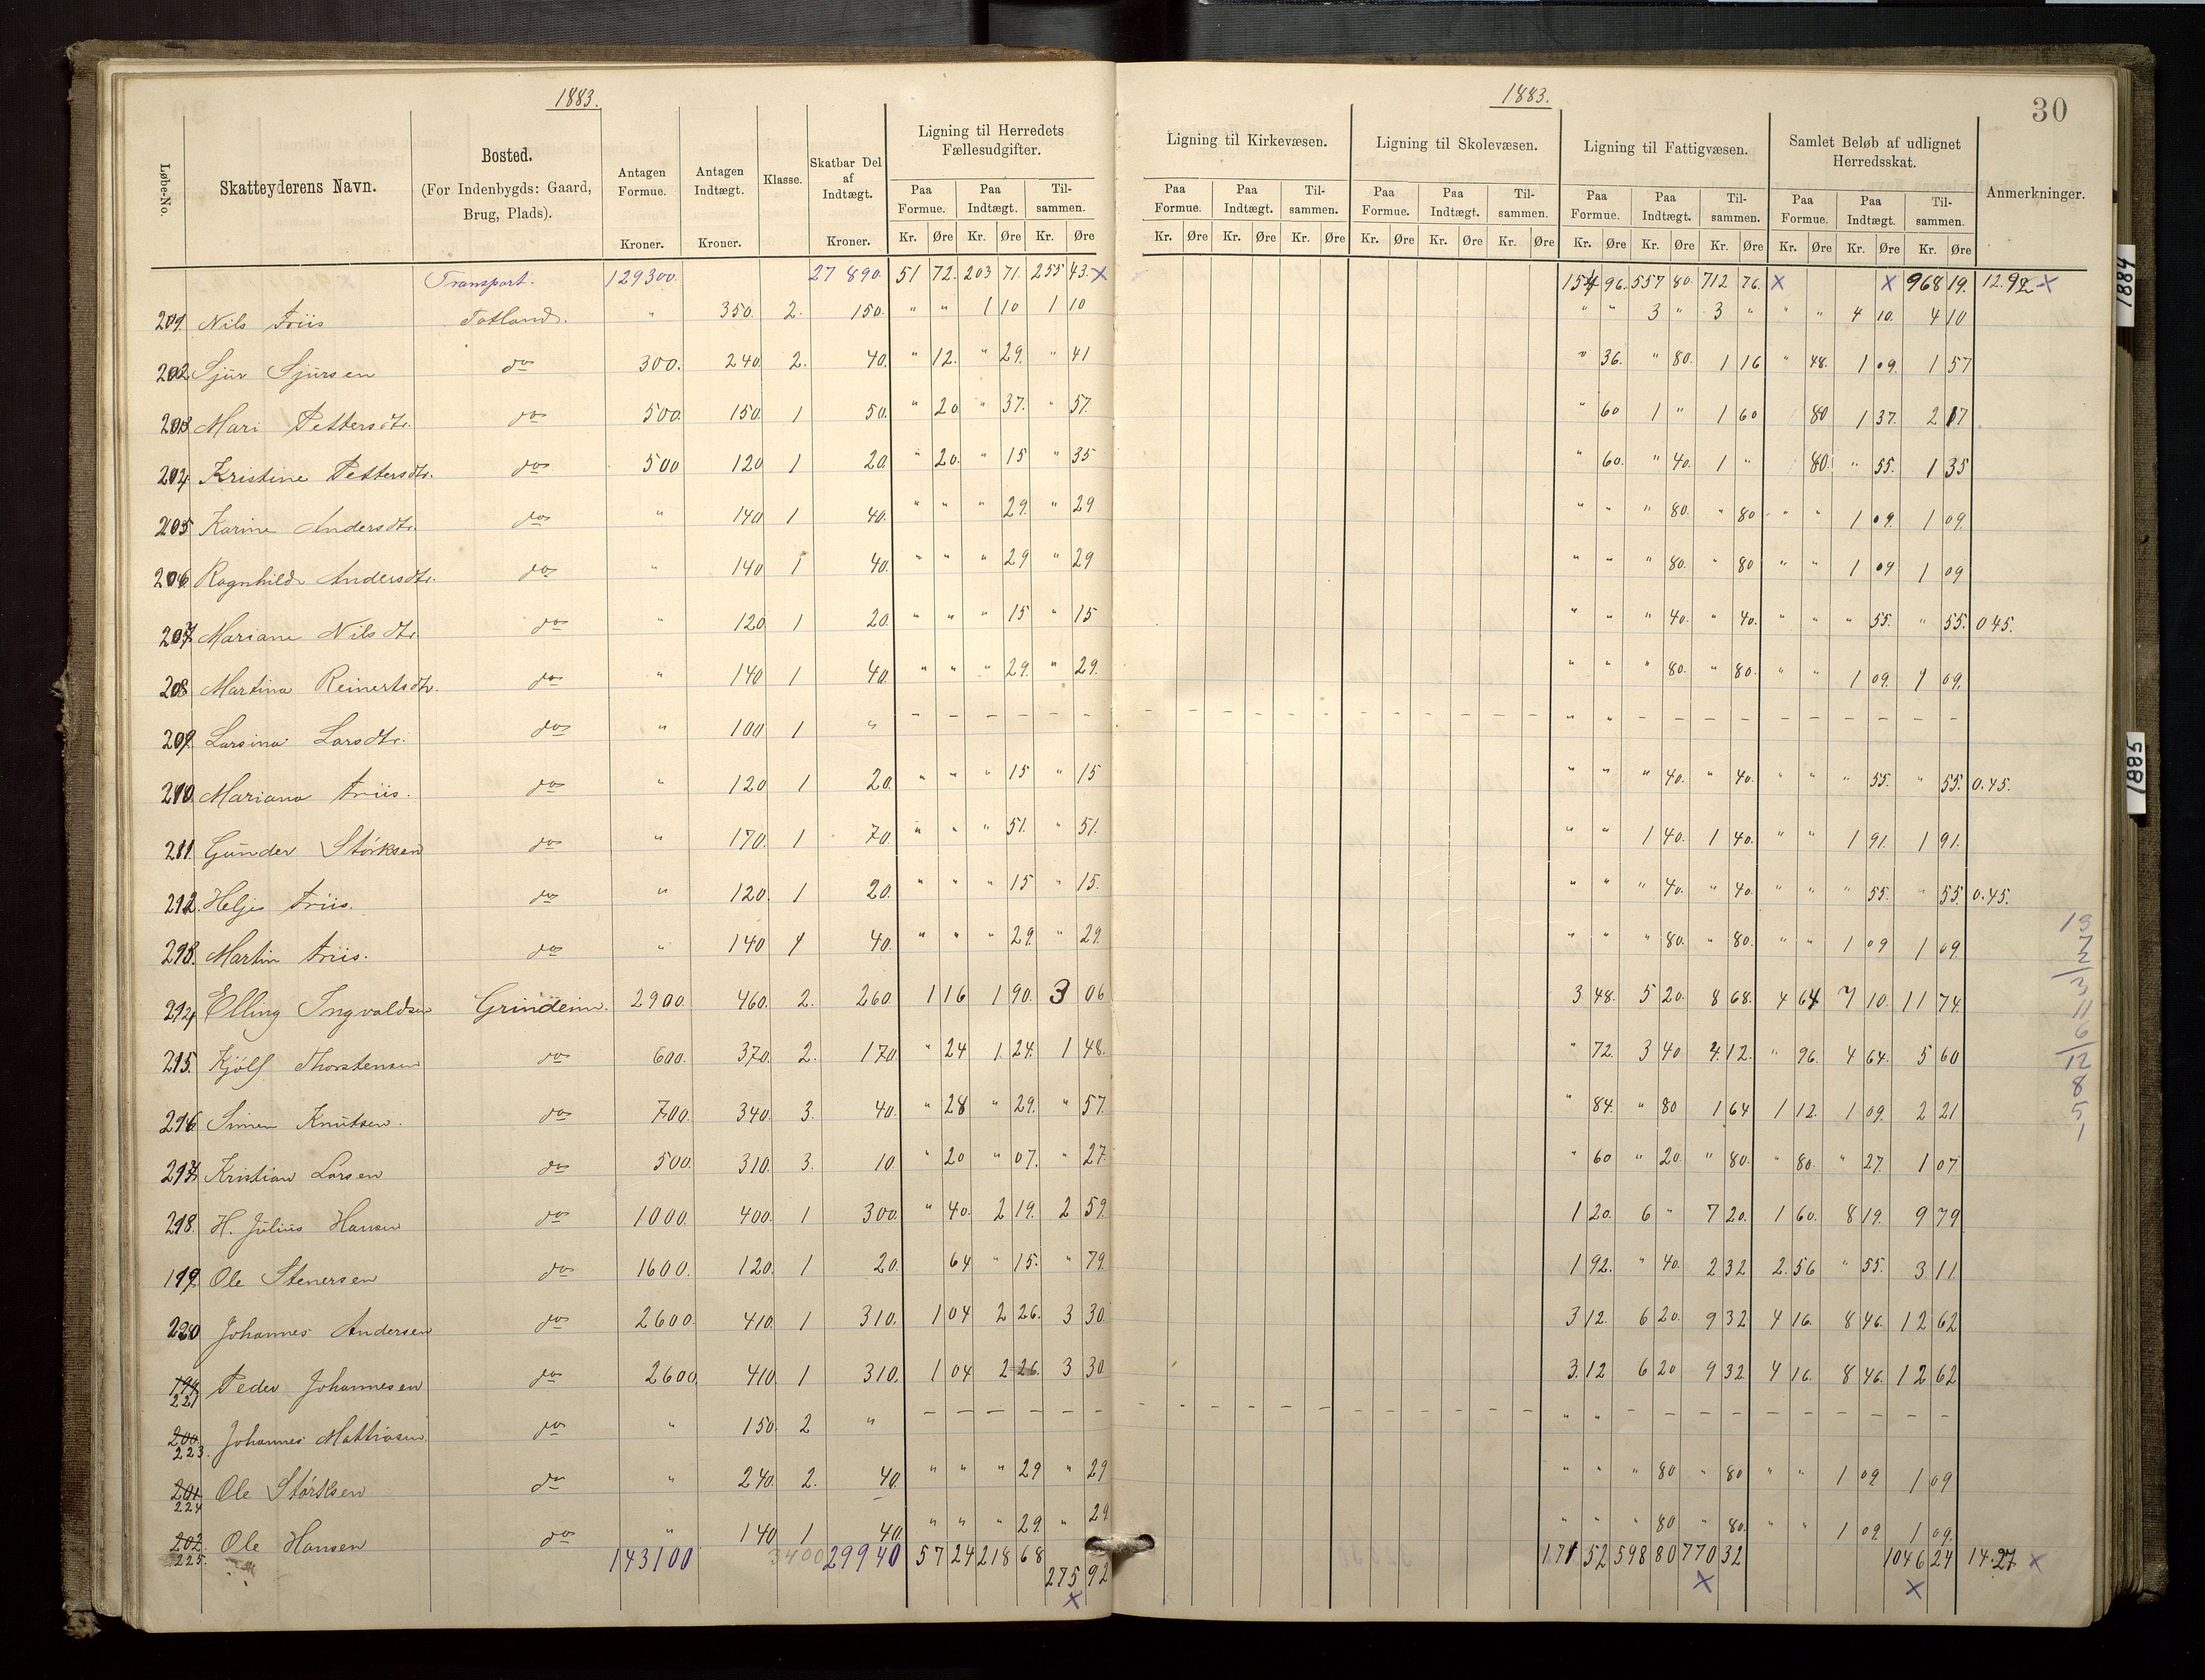 1883.
1883.
30
Løbe-No.
Skatteyderens Navn.
Bosted.
(For Indenbygds: Gaard, Brug, Plads).
Antagen Formue.
Kroner.
Antagen Indtægt.
Kroner.
Klasse.
Skatbar Del af Indtægt.
Kroner.
Ligning til Herredets Fællesudgifter.
Paa Formue. Paa Indtægt. Til-sammen.
Kr. Øre Kr. Øre Kr. Øre
Ligning til Kirkevæsen.
Paa Formue. Paa Indtægt. Til-sammen.
Kr. Øre Kr. Øre Kr. Øre
Ligning til Skolevæsen.
Paa Formue. Paa Indtægt. Til-sammen.
Kr. Øre Kr. Øre Kr. Øre
Ligning til Fattigvæsen.
Paa Formue. Paa Indtægt. Til-sammen.
Kr. Øre Kr. Øre Kr. Øre
Samlet Beløb af udlignet Herredsskat.
Paa Formue. Paa Indtægt. Til-sammen.
Kr. Øre Kr. Øre Kr. Øre
Anmerkninger.
Transport. 129300. 27 890. 51 72. 203 71. 255 43. x 154 96. 557 80. 712 76. x x 968 19. 12.92 x
201. Nils Friis Totland. " 350. 2. 150. " " 1 10 1 10 " " 3 " 3 " " " 4 10. 4 10
202. Sjur Sjursen do 300. 240. 2. 40. " 12. " 29. " 41 " 36. " 80. 1 16 " 48. 1 09. 1 57
203 Mari Pettersdtr. do 500. 150. 1 50. " 20. " 37. " 57. " 60 1 " 1 60 80 1 37. 2 17
204. Kristine Pettersdtr. do 500 120 1 20. " 20. " 15 " 35 " 60. " 40. 1 " 80. " 55. 1 35
205 Karine Andersdtr. do " 140 1 40. " " " 29. " 29 " " " 80. " 80 " " 1 09. 1 09.
206. Ragnhild Andersdtr. do " 140 1 40. " " " 29 " 29 " " " 80. " 80 " " 1 09 1 09
207. Mariane Nilsdtr. do " 120. 1 20. " " " 15 " 15 " " " 40. " 40. " " " 55. " 55. 0 45.
208. Martina Reinertsdtr. do " 140 1 40. " " " 29. " 29. " " " 80. " 80. " " 1 09. 1 09.
209. Larsina Larsdtr. do " 100 1 " – – – – – – – – – – – – – – – – – – " " – – – – – – – – – –
210. Mariana Friis. do " 120 1 20. " " " 15 " 15 " " " 40. " 40. " " " 55. " 55. 0.45.
211. Gunder Størksen do " 170. 1 70. " " " 51. " 51. " " 1 40. 1 40. " " 1 91. 1 91.
212. Helje Friis. do " 120. 1 20. " " " 15 " 15. " " " 40. " 40. " " " 55. " 55. 0.45.
213. Martin Friis. do " 140 1 40. " " " 29. " 29. " " " 80. " 80. " " 1 09 1 09
214 Elling Ingvaldsen Grindeim. 2900. 460. 2. 260 1 16 1 90. 3 06 3 48. 5 20. 8 68. 4 64 7 10. 11 74.
215. Kjölf Thorstensen do 600. 370. 2. 170. " 24 1 24. 1 48. " 72. 3 40 4.12. " 96. 4 64. 5 60
216 Simen Knutsen. do 700. 340. 3. 40. " 28 " 29. " 57. " 84. " 80 1 64 1 12. 1 09. 2 21
217. Kristian Larsen do 500. 310. 3. 10. " 20 " 07. " 27. " 60 " 20. " 80. " 80. " 27. 1 07
218. H. Julius Hansen do 1000. 400. 1 300. " 40. 2 19. 2 59. 1 20. 6 " 7 20. 1 60. 8 19. 9 79
199. Ole Stenersen do 1600. 120. 1 20. 64 " 15. " 79. 1 92. " 40. 2 32 2.56 " 55. 3 11.
220 Johannes Andersen do 2600. 410. 1 310. 1 04 2 26. 3 30. 3 12. 6 20. 9 32 4 16. 8 46. 12 62
221 Peder Johannesen do 2600. 410. 1 310. 1 04 2 26. 3 30. 3.12 6 20 9 32 4 16. 8 46. 12 62
200. 223. Johannes Mathiasen do " 150. 2 " – – – – – – – – – – – – – – – – – – " " – – – – – – – – – –
201 224 Ole Størksen do " 240. 2. 40. " " " 29 " 29 " " " 80 " 80 " " 1 09. 1 09
202. 225. Ole Hansen do " 140 1 40. " " " 29. " 29 " " " 80 " 80. " " 1 09. 1 09.
143100 3400 29940 57 24 218 68 275 92 x 171 52 598 80 770 32 x 1046 24 x 14.27 x
13
7
2
3
11
6
12
8
5
1
1884
1885